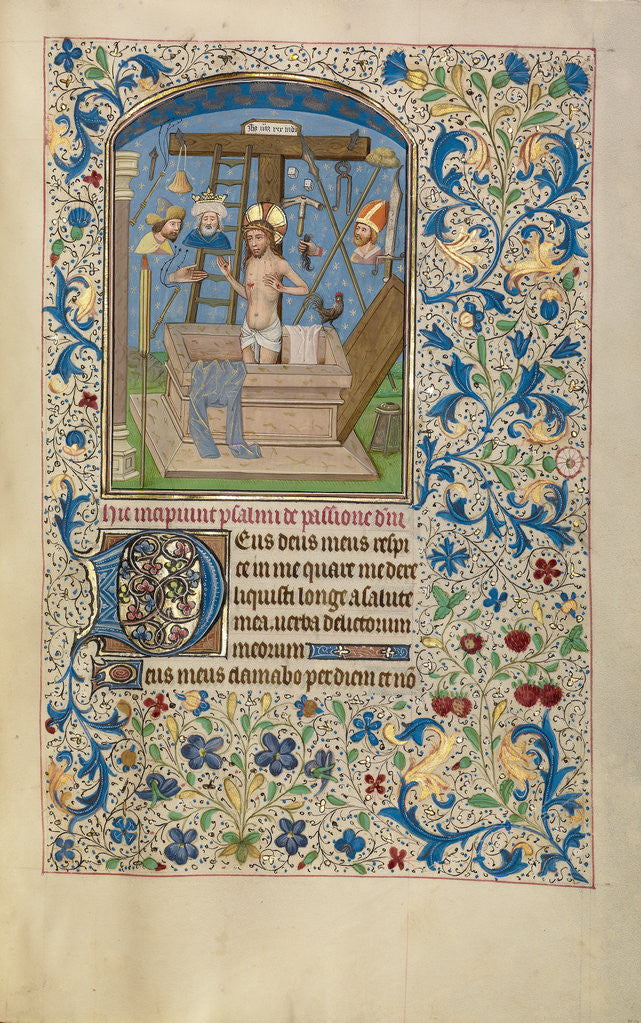 ihs naz rex iude
hic incipiunt psalmi de passione dm
Deus deus meus respi
ce in me quare me dere
liquisti longe a salute
mea. uerba delictorum
meorum
Deus meus clamabo per diem et nō